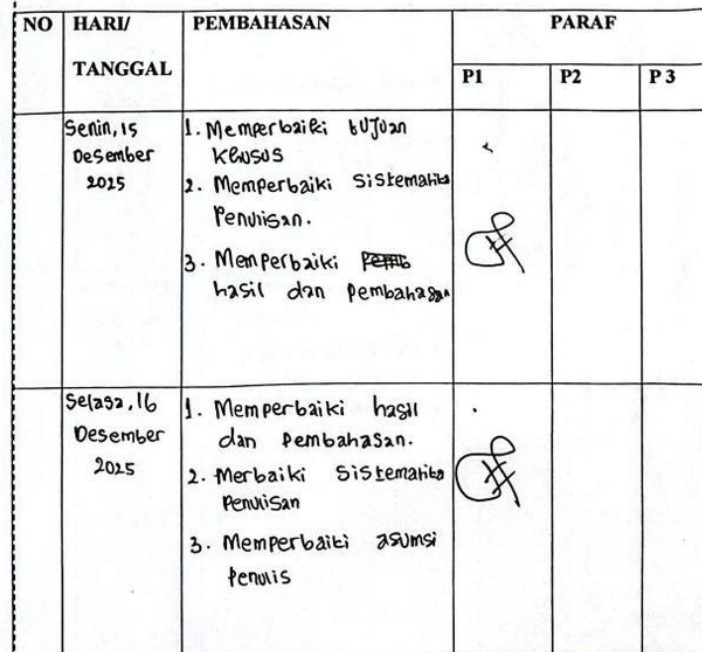 NO HARI/ PEMBAHASAN PARAF
TANGGAL P1 P2 P 3
Senin, 15
Desember
2025
1. Memperbaiki tujuan
Khusus
2. Memperbaiki Sistematika
Penulisan.
3. Memperbaiki
hasil dan Pembahasan
Selasa, 16
Desember
2025
1. Memperbaiki hasil
dan Pembahasan.
2. Merbaiki Sistematika
Penulisan
3. Memperbaiki asumsi
Penulis